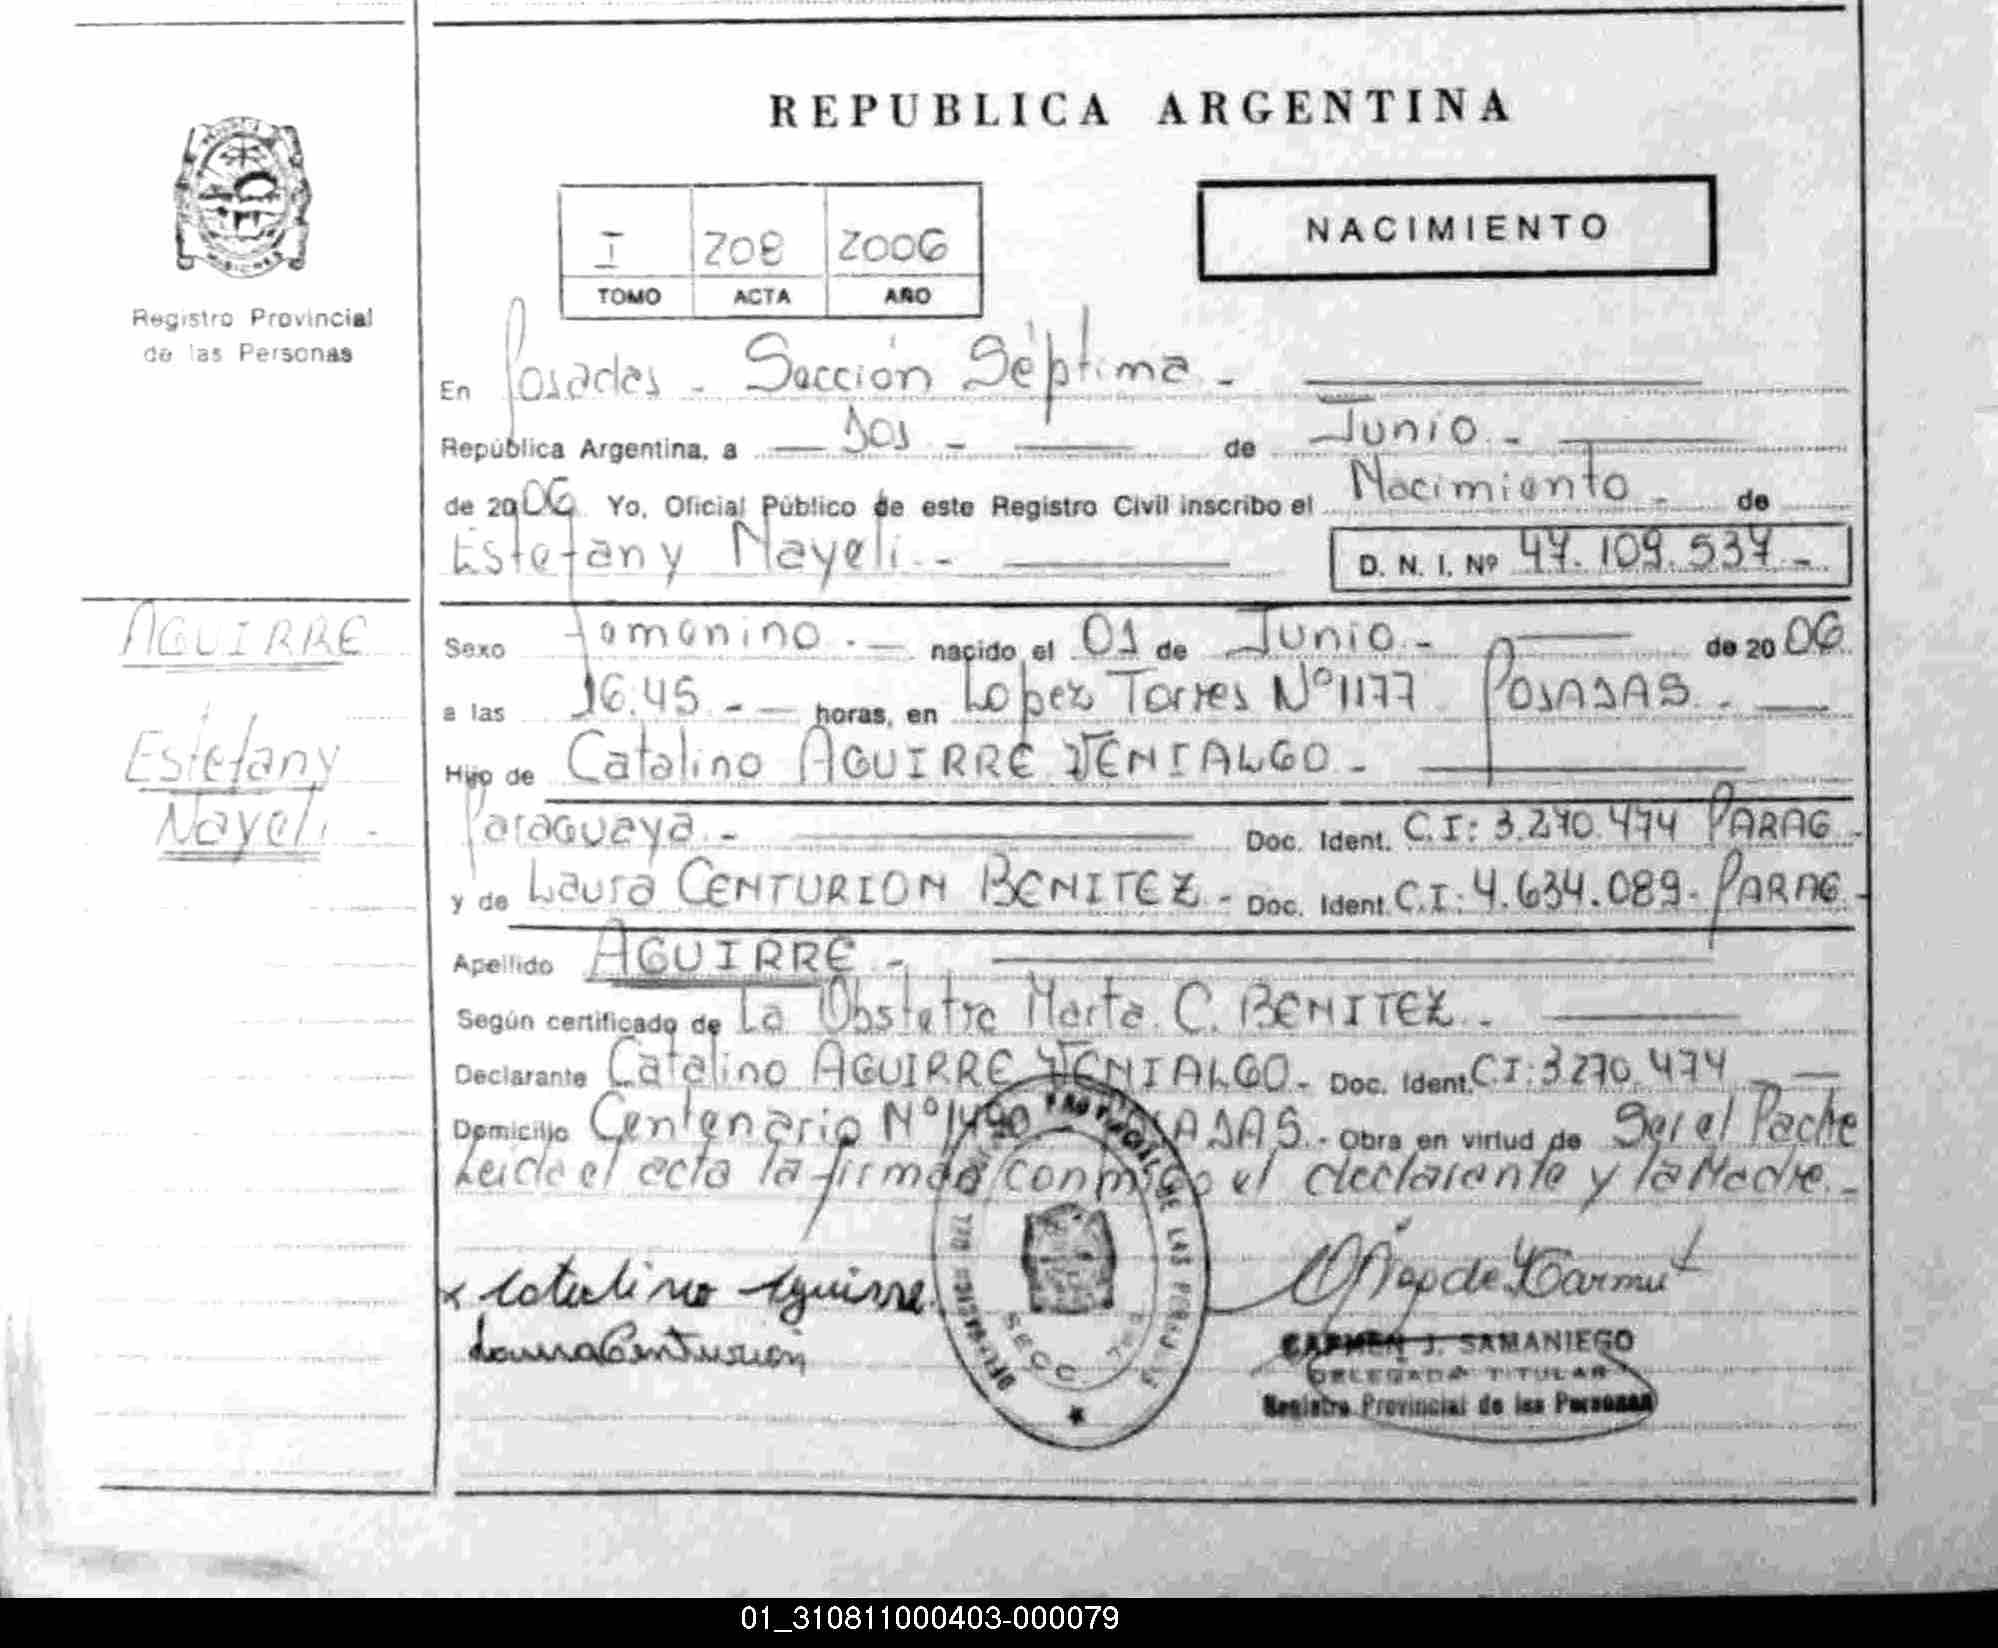 REPUBLICA ARGENTINA
NACIMIENTO
I 208 2006
TOMO ACTA AÑO
Registro Provincial
de las Personas
En Posadas - Sección Séptima -
República Argentina, a Dos - de Junio -
de 2006 Yo, Oficial Público de este Registro Civil inscribo el Nacimiento - de
Estefany Nayeli - D. N. I. Nº 47.109.537 -
AGUIRRE
Estefany
Nayeli -
Sexo femenino - nacido el 01 de Junio - de 2006
a las 16:45 - horas, en Lopez Torres Nº 1177 POSADAS -
Hijo de Catalino AGUIRRE VENIALGO -
Paraguaya - Doc. Ident. C.I: 3.270.474 PARAG -
y de Laura CENTURION BENITEZ - Doc. Ident. C.I: 4.634.089 - PARAG -
Apellido AGUIRRE -
Según certificado de La Obstetra Marta C. BENITEZ -
Declarante Catalino AGUIRRE VENIALGO - Doc. Ident. C.I: 3270.474
Domicilio Centenario Nº 1490 - Obra en virtud de Ser el Padre
Leida el acta la firman conmigo el declarante y la Madre -
x Catalino Aguirre
Laura Centurión
CARMEN J. SAMANIEGO
DELEGADA TITULAR
Registro Provincial de las Personas
SECC
01_310811000403-000079